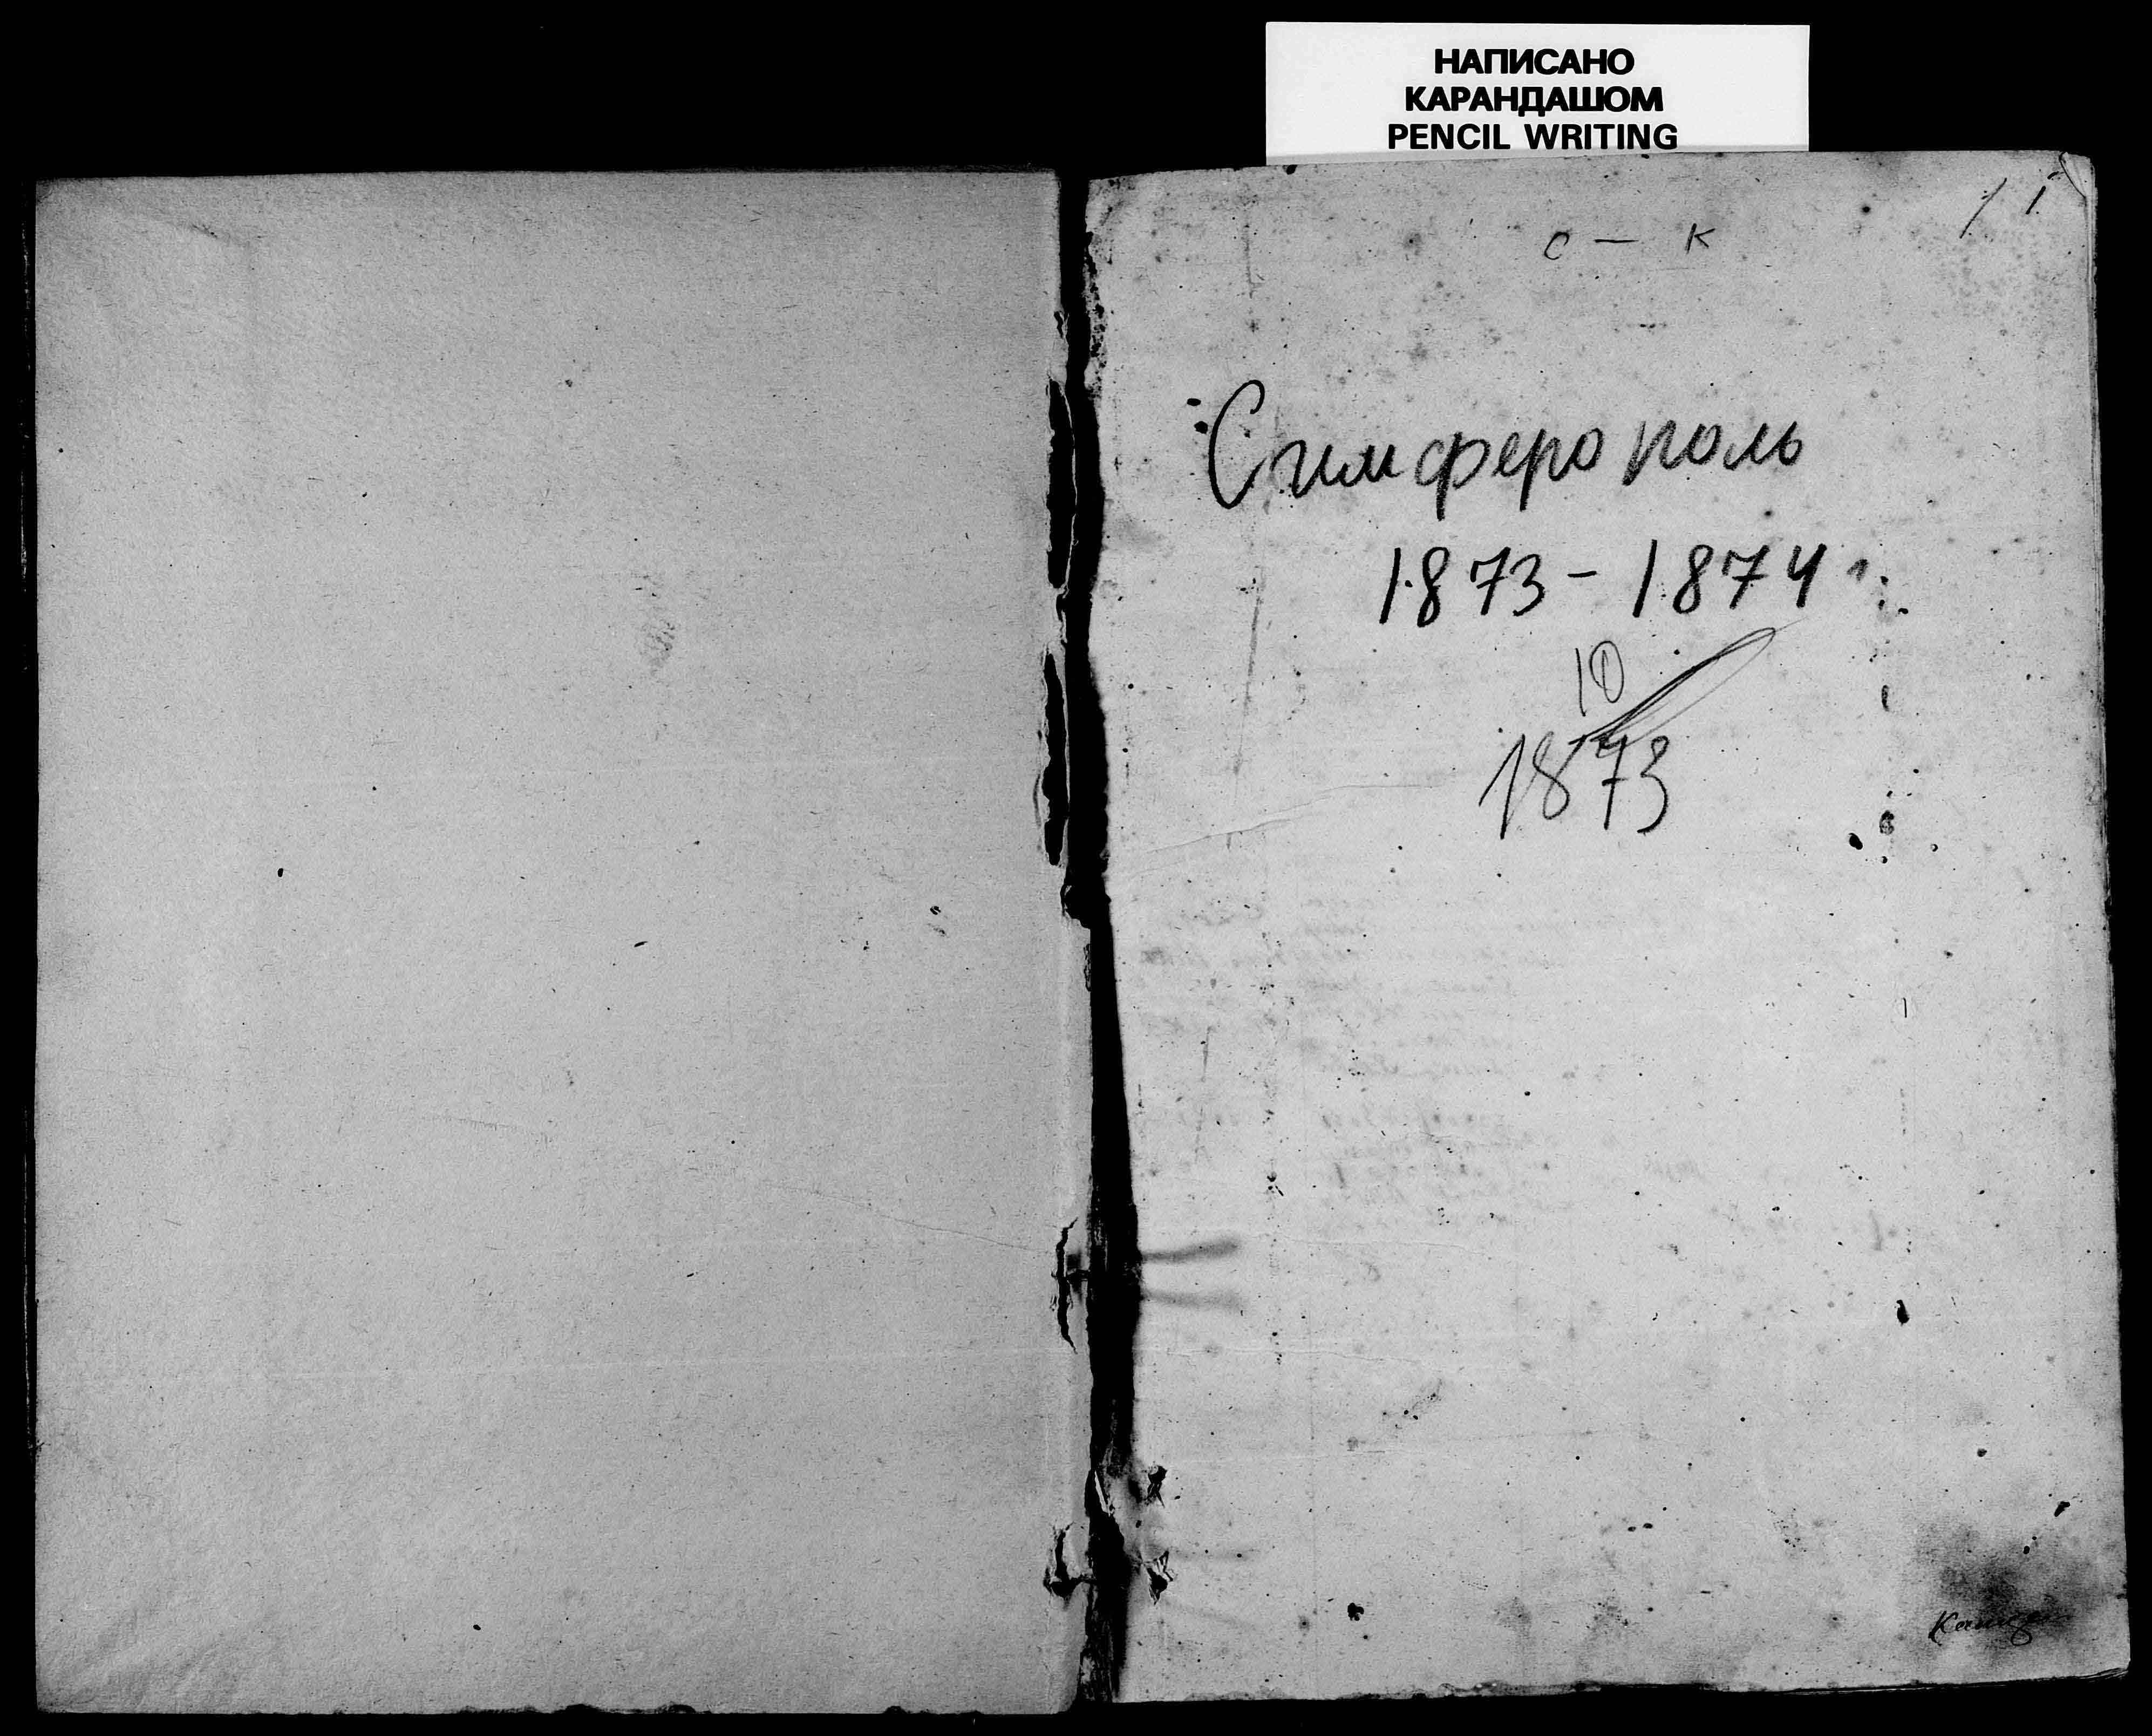 НАПИСАНО
КАРАНДАШОМ
PENCIL WRITING
/ 1
с — к
Симферополь
1873 - 1874 г.
10
1873